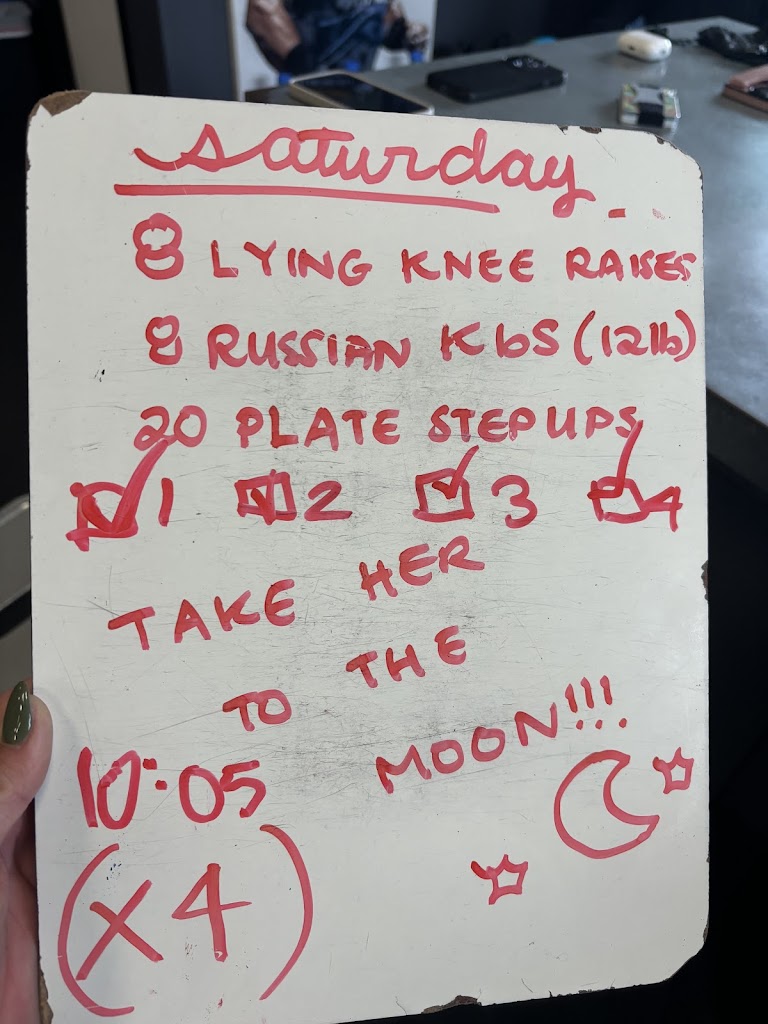 saturday
8 LYING KNEE RAISES
8 RUSSIAN KbS (12lb)
20 PLATE STEP UPS
1 2 3 4
TAKE HER
TO THE
MOON!!!
10:05
(x4)